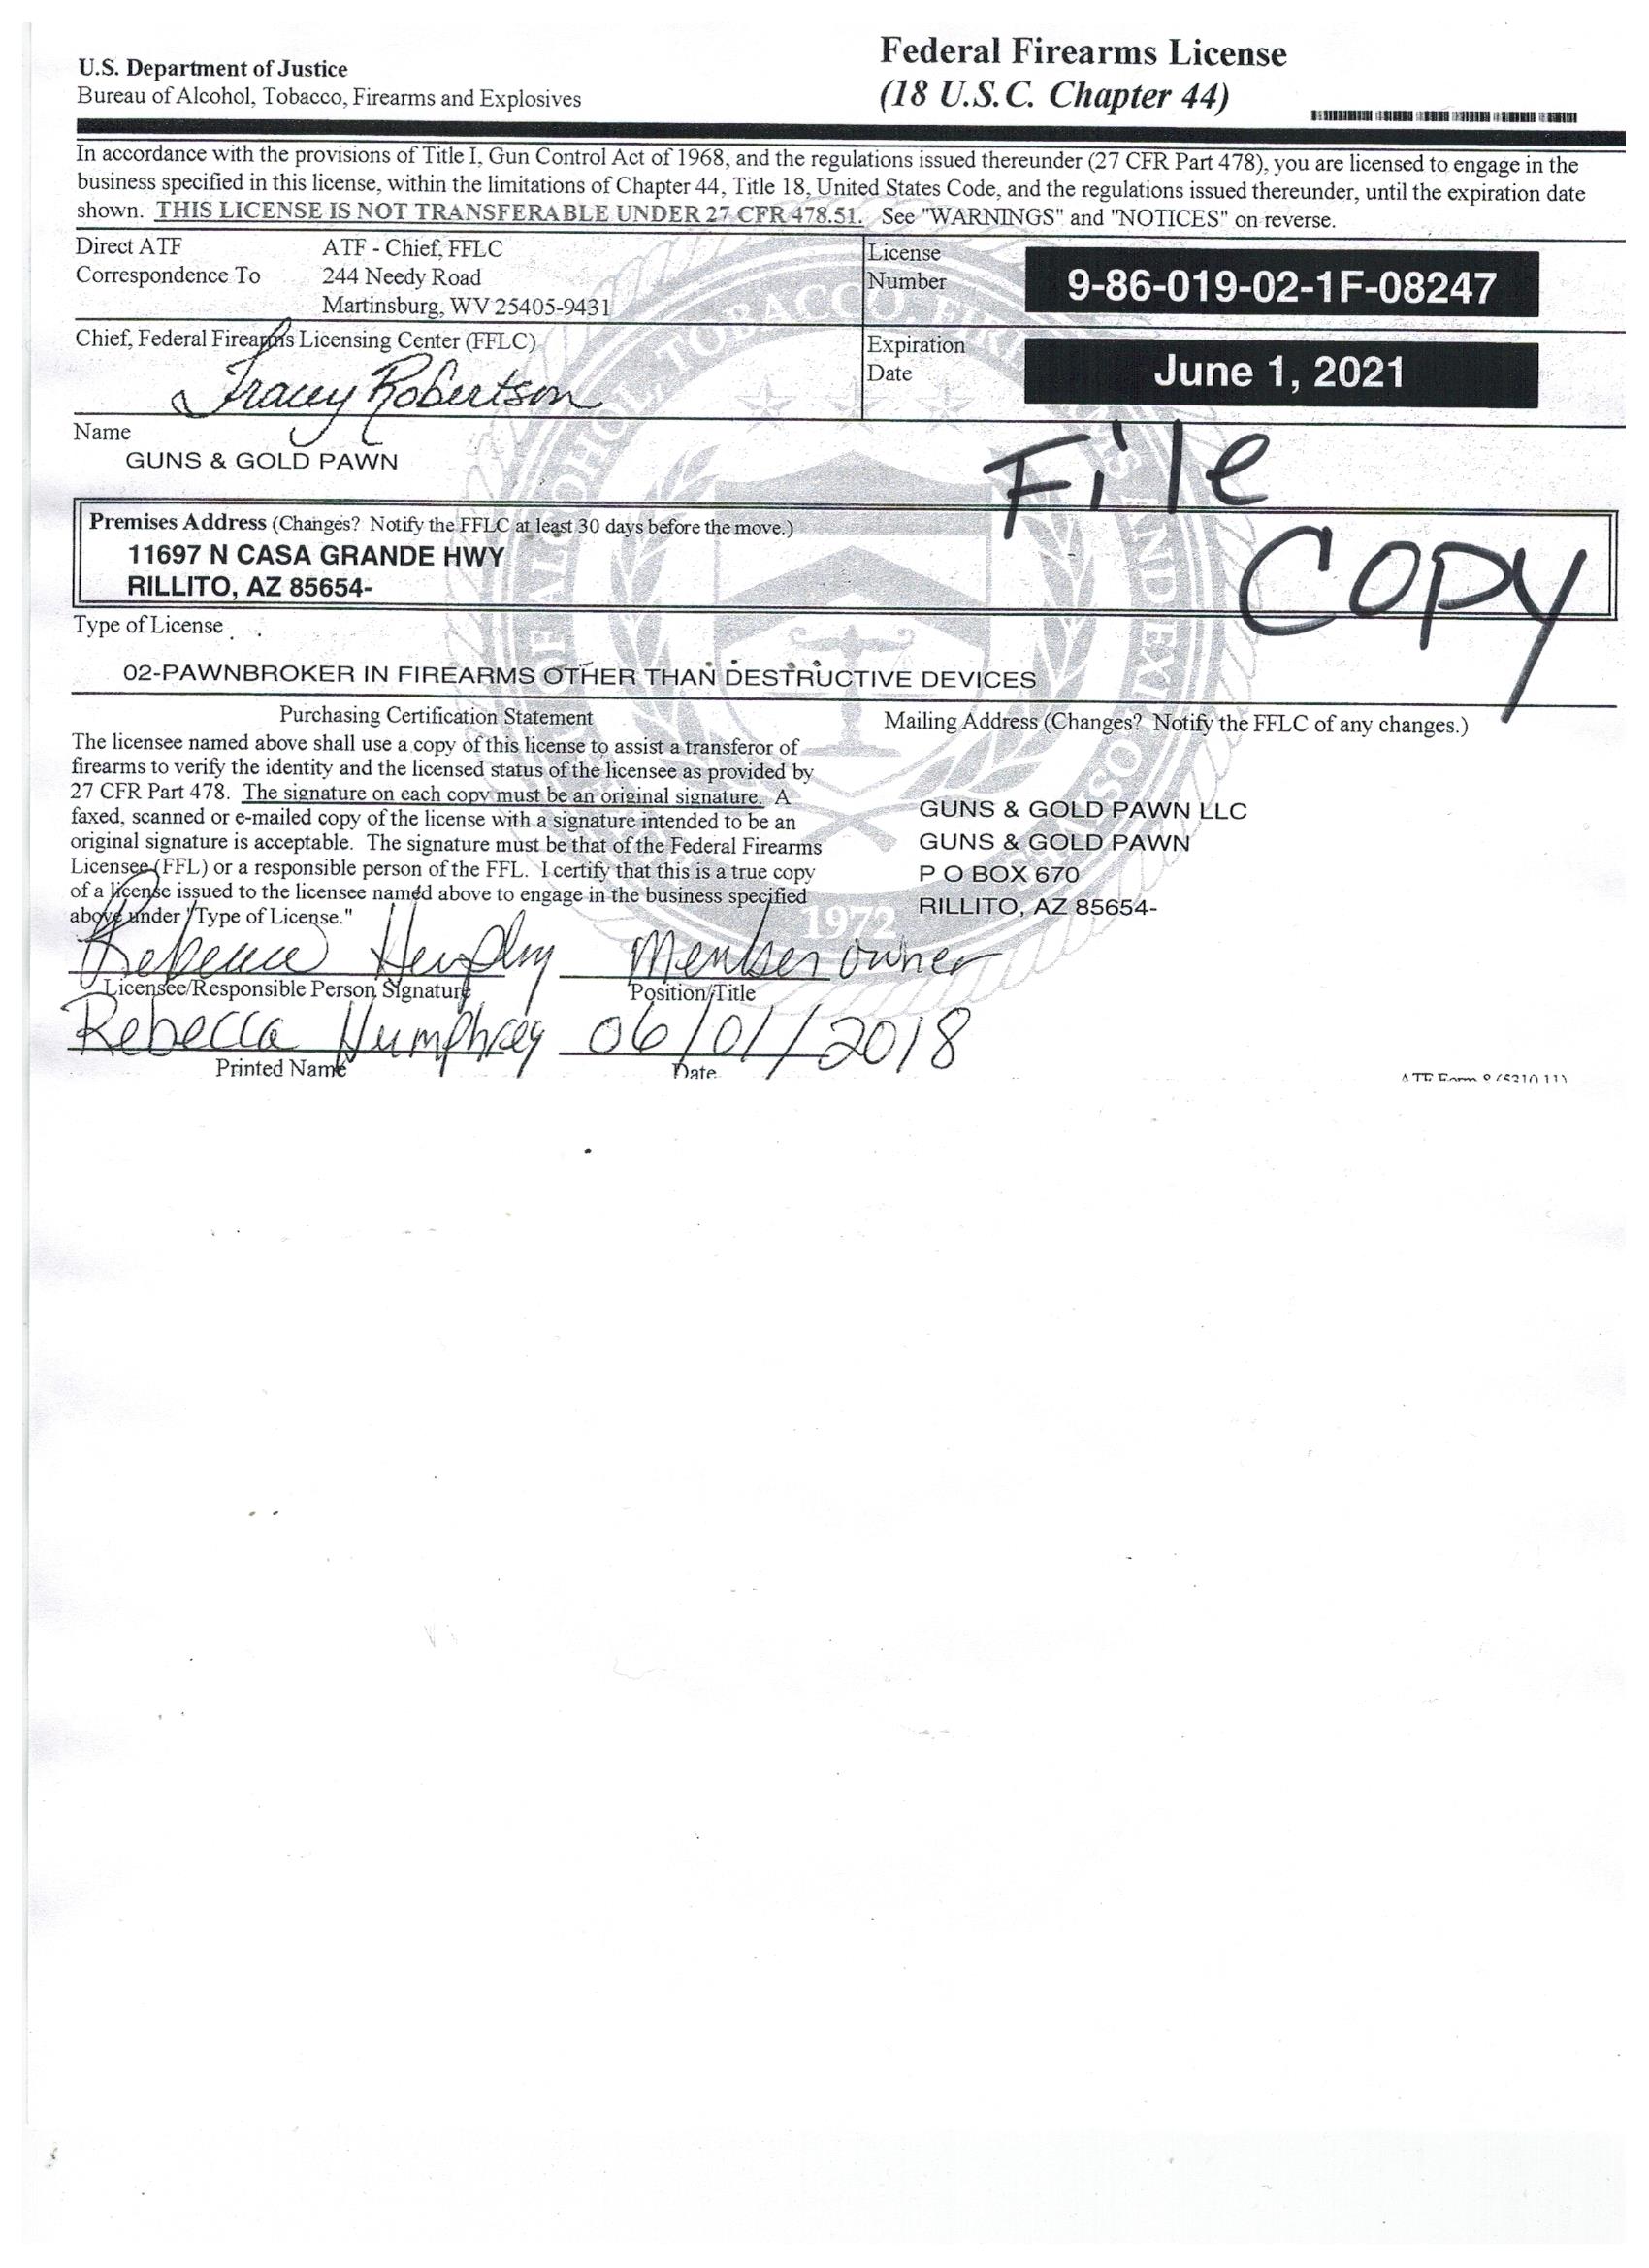 U.S. Department of Justice
Bureau of Alcohol, Tobacco, Firearms and Explosives
Federal Firearms License
(18 U.S.C. Chapter 44)
In accordance with the provisions of Title I, Gun Control Act of 1968, and the regulations issued thereunder (27 CFR Part 478), you are licensed to engage in the
business specified in this license, within the limitations of Chapter 44, Title 18, United States Code, and the regulations issued thereunder, until the expiration date
shown. THIS LICENSE IS NOT TRANSFERABLE UNDER 27 CFR 478.51. See "WARNINGS" and "NOTICES" on reverse.
Direct ATF
Correspondence To
ATF - Chief, FFLC
244 Needy Road
Martinsburg, WV 25405-9431
License
Number
9-86-019-02-1F-08247
Chief, Federal Firearms Licensing Center (FFLC)
Tracey Robertson
Expiration
Date
June 1, 2021
Name
GUNS & GOLD PAWN
File
Copy
Premises Address (Changes? Notify the FFLC at least 30 days before the move.)
11697 N CASA GRANDE HWY
RILLITO, AZ 85654-
Type of License
02-PAWNBROKER IN FIREARMS OTHER THAN DESTRUCTIVE DEVICES
Purchasing Certification Statement
The licensee named above shall use a copy of this license to assist a transferor of
firearms to verify the identity and the licensed status of the licensee as provided by
27 CFR Part 478. The signature on each copy must be an original signature. A
faxed, scanned or e-mailed copy of the license with a signature intended to be an
original signature is acceptable. The signature must be that of the Federal Firearms
Licensee (FFL) or a responsible person of the FFL. I certify that this is a true copy
of a license issued to the licensee named above to engage in the business specified
above under "Type of License."
Mailing Address (Changes? Notify the FFLC of any changes.)
GUNS & GOLD PAWN LLC
GUNS & GOLD PAWN
P O BOX 670
RILLITO, AZ 85654-
1972
Rebecca Humphrey Member owner
Licensee/Responsible Person Signature Position/Title
Rebecca Humphrey 06/01/2018
Printed Name Date
ATF Form 8 (5310.11)